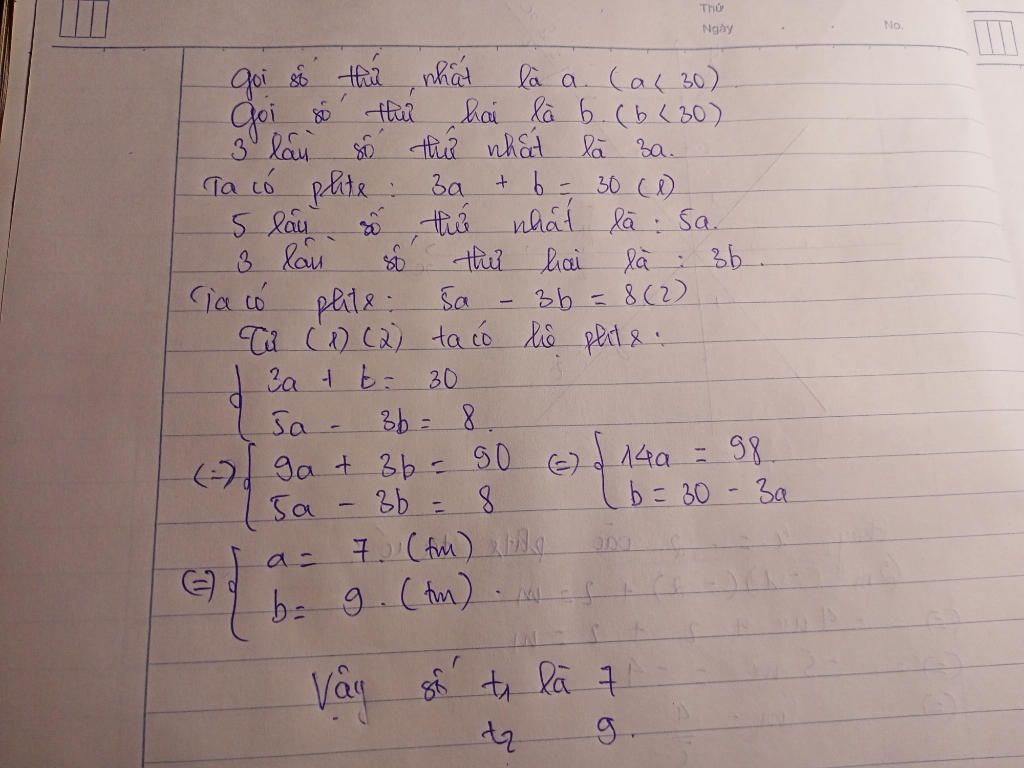 Thứ
Ngày . . No.
Gọi số thứ nhất là a. (a < 30)
Gọi số thứ hai là b. (b < 30)
3 lần số thứ nhất là 3a.
Ta có phtr: 3a + b = 30 (1)
5 lần số thứ nhất là: 5a.
3 lần số thứ hai là: 3b.
Ta có phtr: 5a - 3b = 8 (2)
Từ (1) (2) ta có hệ phtr:
{ 3a + b = 30
5a - 3b = 8.
(=) { 9a + 3b = 90 (=) { 14a = 98
5a - 3b = 8 b = 30 - 3a
(=) { a = 7. (tm)
b = 9. (tm).
Vậy số t1 là 7
t2 9.